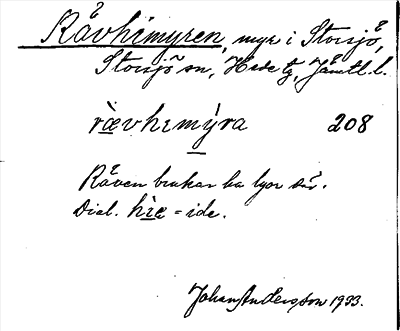 Rävhimyren, myr i Storsjö,
Storsjö sn, Hede tg, Jämtl. l.
rævhɩmýra 208
Räven brukar ha lyor där.
Dial. hìe = ide.
Johan Andersson 1933.